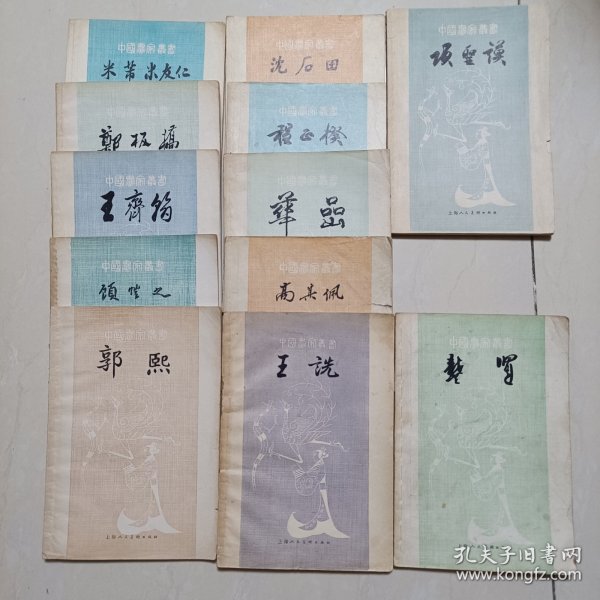 中國畫家叢書
米芾 米友仁
中國畫家叢書
鄭板橋
中國畫家叢書
王齊翰
中國畫家叢書
顧愷之
中國畫家叢書
郭熙
上海人民美術出版社
中國畫家叢書
沈石田
中國畫家叢書
程正揆
中國畫家叢書
華嵒
中國畫家叢書
高其佩
中國畫家叢書
王詵
上海人民美術出版社
中國畫家叢書
項聖謨
上海人民美術出版社
中國畫家叢書
龔賢
上海人民美術出版社
孔夫子旧书网
www.kongfz.com